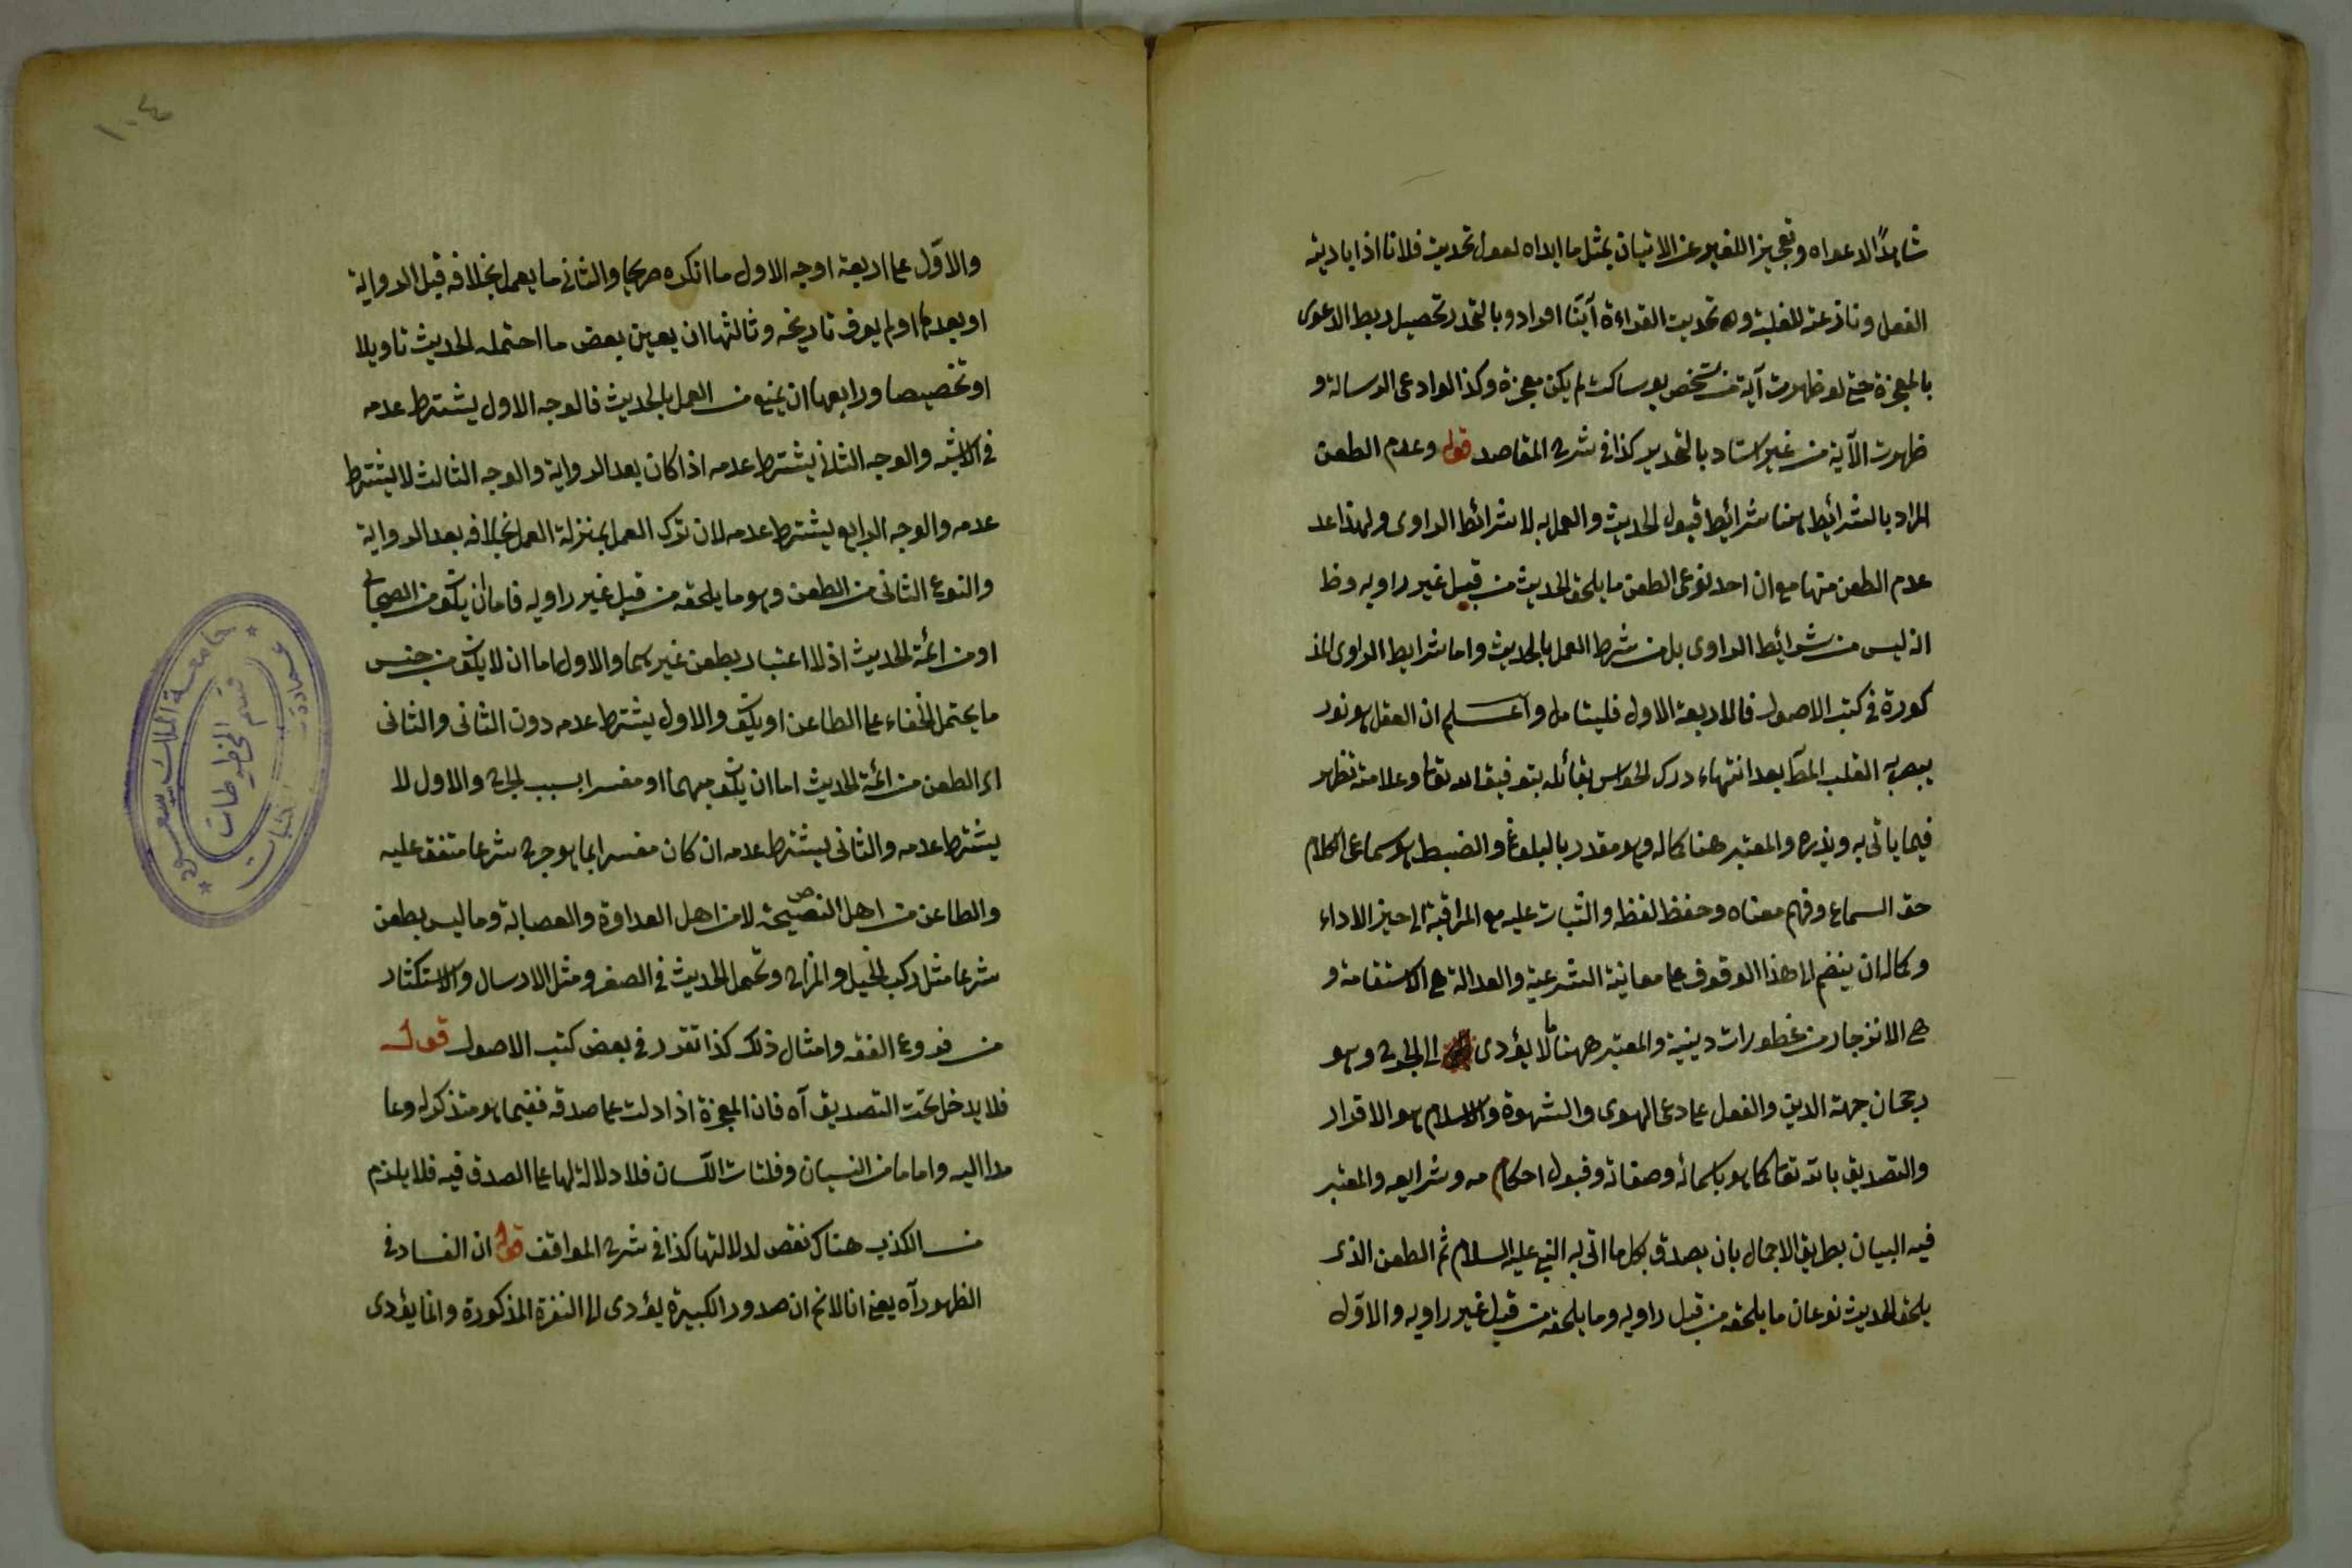 شاهدًا لدعواه وتعجيز الغير عن الاتيان بمثل ما ابداه لقول تحديت فلانا اذا باديته
الفعل ونازعته للغلبة و تحديت القراءة آيتنا اقراد وبالتحدى تحصيل ربط الدعوى
بالمعجزة حتى لو ظهرت آية من شخص هو ساكت لم يكن معجزة وكذا لو ادعى الرسالة و
ظهرت الآية من غير استاد بالتحدى كذا فى شرح المقاصد قوله وعدم الطعن
المراد بالشرائط هنا شرائط قبول الحديث والعمل به لا شرائط الراوى ولهذا عد
عدم الطعن منها مع ان احد نوعى الطعن ما يلحق الحديث من قبل غير راويه وظ
انه ليس من شرائط الراوى بل من شرط العمل بالحديث واما شرايط الراوى المذ
كورة فى كتب الاصول فالاربعة الاول فليتامل واعلم ان العقل هو نور
يبصر به القلب المط بعد انتهاء درك الحواس بتأمله بتوفيق الله تعا وعلامته تظهر
فيما ياتى به ويذره والمعتبر هنا كماله وهو مقدر بالبلوغ والضبط هو سماع الكلام
حق السماع وفهم معناه وحفظ لفظه والثبات عليه مع المراقبة الى حيز الاداء
وكماله ان ينضم الى هذا الوقوف على معانيه الشرعية والعدالة هى الاستقامة و
هى الانزجار من محظورات دينية والمعتبر ههنا ما لا يؤدى الى الحرج وهو
رجحان جهة الدين والعقل على داعى الهوى والشهوة والاسلام هو الاقرار
والتصديق بالله تعا كما هو باسمائه وصفاته وقبول احكامه وشرايعه والمعتبر
فيه البيان بطريق الاجمال بان يصدق بكل ما اتى به النبى عليه السلام ثم الطعن الذى
يلحق الحديث نوعان ما يلحقه من قبل راويه وما يلحقه من قبل غير راويه والاوّل
١٠٤
والاوّل على اربعة اوجه الاول ما انكره صريحا والثانى ما يعمل بخلافه قبل الرواية
او بعدها او لم يعرف تاريخه وثالثها ان يعين بعض ما احتمله الحديث تاويلا
او تخصيصا ورابعها ان يمنع من العمل بالحديث فالوجه الاول يشترط عدمه
فى الاشبه والوجه الثانى يشترط عدمه اذا كان بعد الرواية والوجه الثالث لا يشترط
عدمه والوجه الرابع يشترط عدمه لان ترك العمل بمنزلة العمل بخلافه بعد الرواية
والنوع الثانى من الطعن وهو ما يلحقه من قبل غير راويه فاما ان يكون من الصحابى
او من ائمة الحديث اذ لا اعتبار بطعن غيرهما والاول اما ان لا يكون من جنس
ما يحتمل الخفاء على الطاعن او يكون والاول يشترط عدمه دون الثانى والثانى
اى الطعن من ائمة الحديث اما ان يكون مبهما او مفسرا بسبب الجرح والاول لا
يشترط عدمه والثانى يشترط عدمه ان كان مفسرا بما هو جرح شرعا متفق عليه
والطاعن من اهل النصيحة لا من اهل العداوة والعصابة وما ليس بطعن
شرعا مثل ركب الخيل والمزاح وتحمل الحديث فى الصغر ومثل الارسال والاستكثار
من فروع الفقه وامثال ذلك كذا تقرر فى بعض كتب الاصول قوله
فلا يدخل تحت التصديق آه فان المعجزة اذا دلت على صدقه ففيما هو متذكر له وعا
مدا اليه واما ما من النسيان وفلتات اللسان فلا دلالة لها على الصدق فيه فلا يلزم
من الكذب هناك نقض لدلالتها كذا فى شرح المواقف قوله ان الفساد فى
الظهور آه يعنى انا لا نم ان صدور الكبيرة يؤدى الى النفرة المذكورة وانما يؤدى
جامعة الملك سعود
قسم المخطوطات
عمادة المكتبات